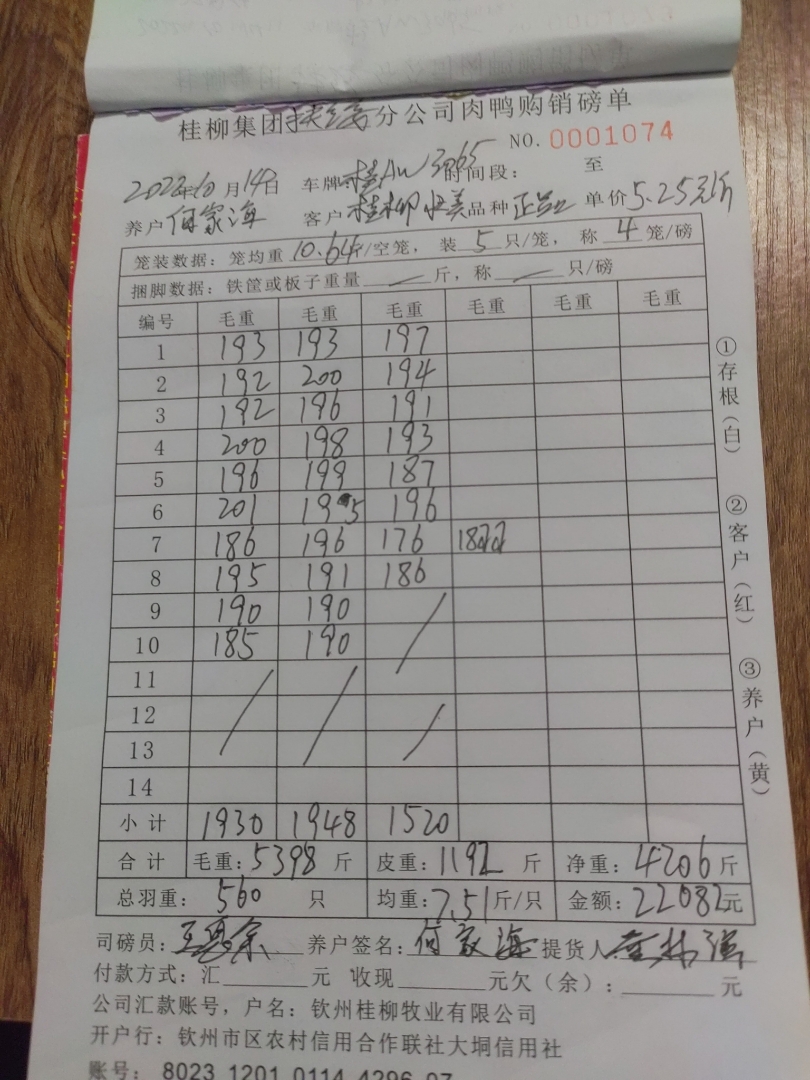 桂柳集团 分公司肉鸭购销磅单
NO. 0001074
2022年10月14日 车牌:桂AW3065 时间段: 至
养户 何家海 客户 桂柳 品种 单价 5.25元/斤
笼装数据:笼均重 10.64斤/空笼,装 5 只/笼,称 4 笼/磅
捆脚数据:铁筐或板子重量 / 斤,称 / 只/磅
编号 毛重 毛重 毛重 毛重 毛重 毛重
1 193 193 197
2 192 200 194
3 192 196 191
4 200 198 193
5 196 199 187
6 201 195 196
7 186 196 176
8 195 191 186
9 190 190 /
10 185 190
11 / /
12 /
13
14
小计 1930 1948 1520
合计 毛重:5398 斤 皮重:1192 斤 净重:4206 斤
总羽重: 560 只 均重:7.51斤/只 金额:22082元
司磅员: 养户签名:何家海 提货人
付款方式:汇 元 收现 元欠(余): 元
公司汇款账号,户名:钦州桂柳牧业有限公司
开户行:钦州市区农村信用合作联社大垌信用社
账号:8023 1201 0114 4296 07
①存根(白)
②客户(红)
③养户(黄)